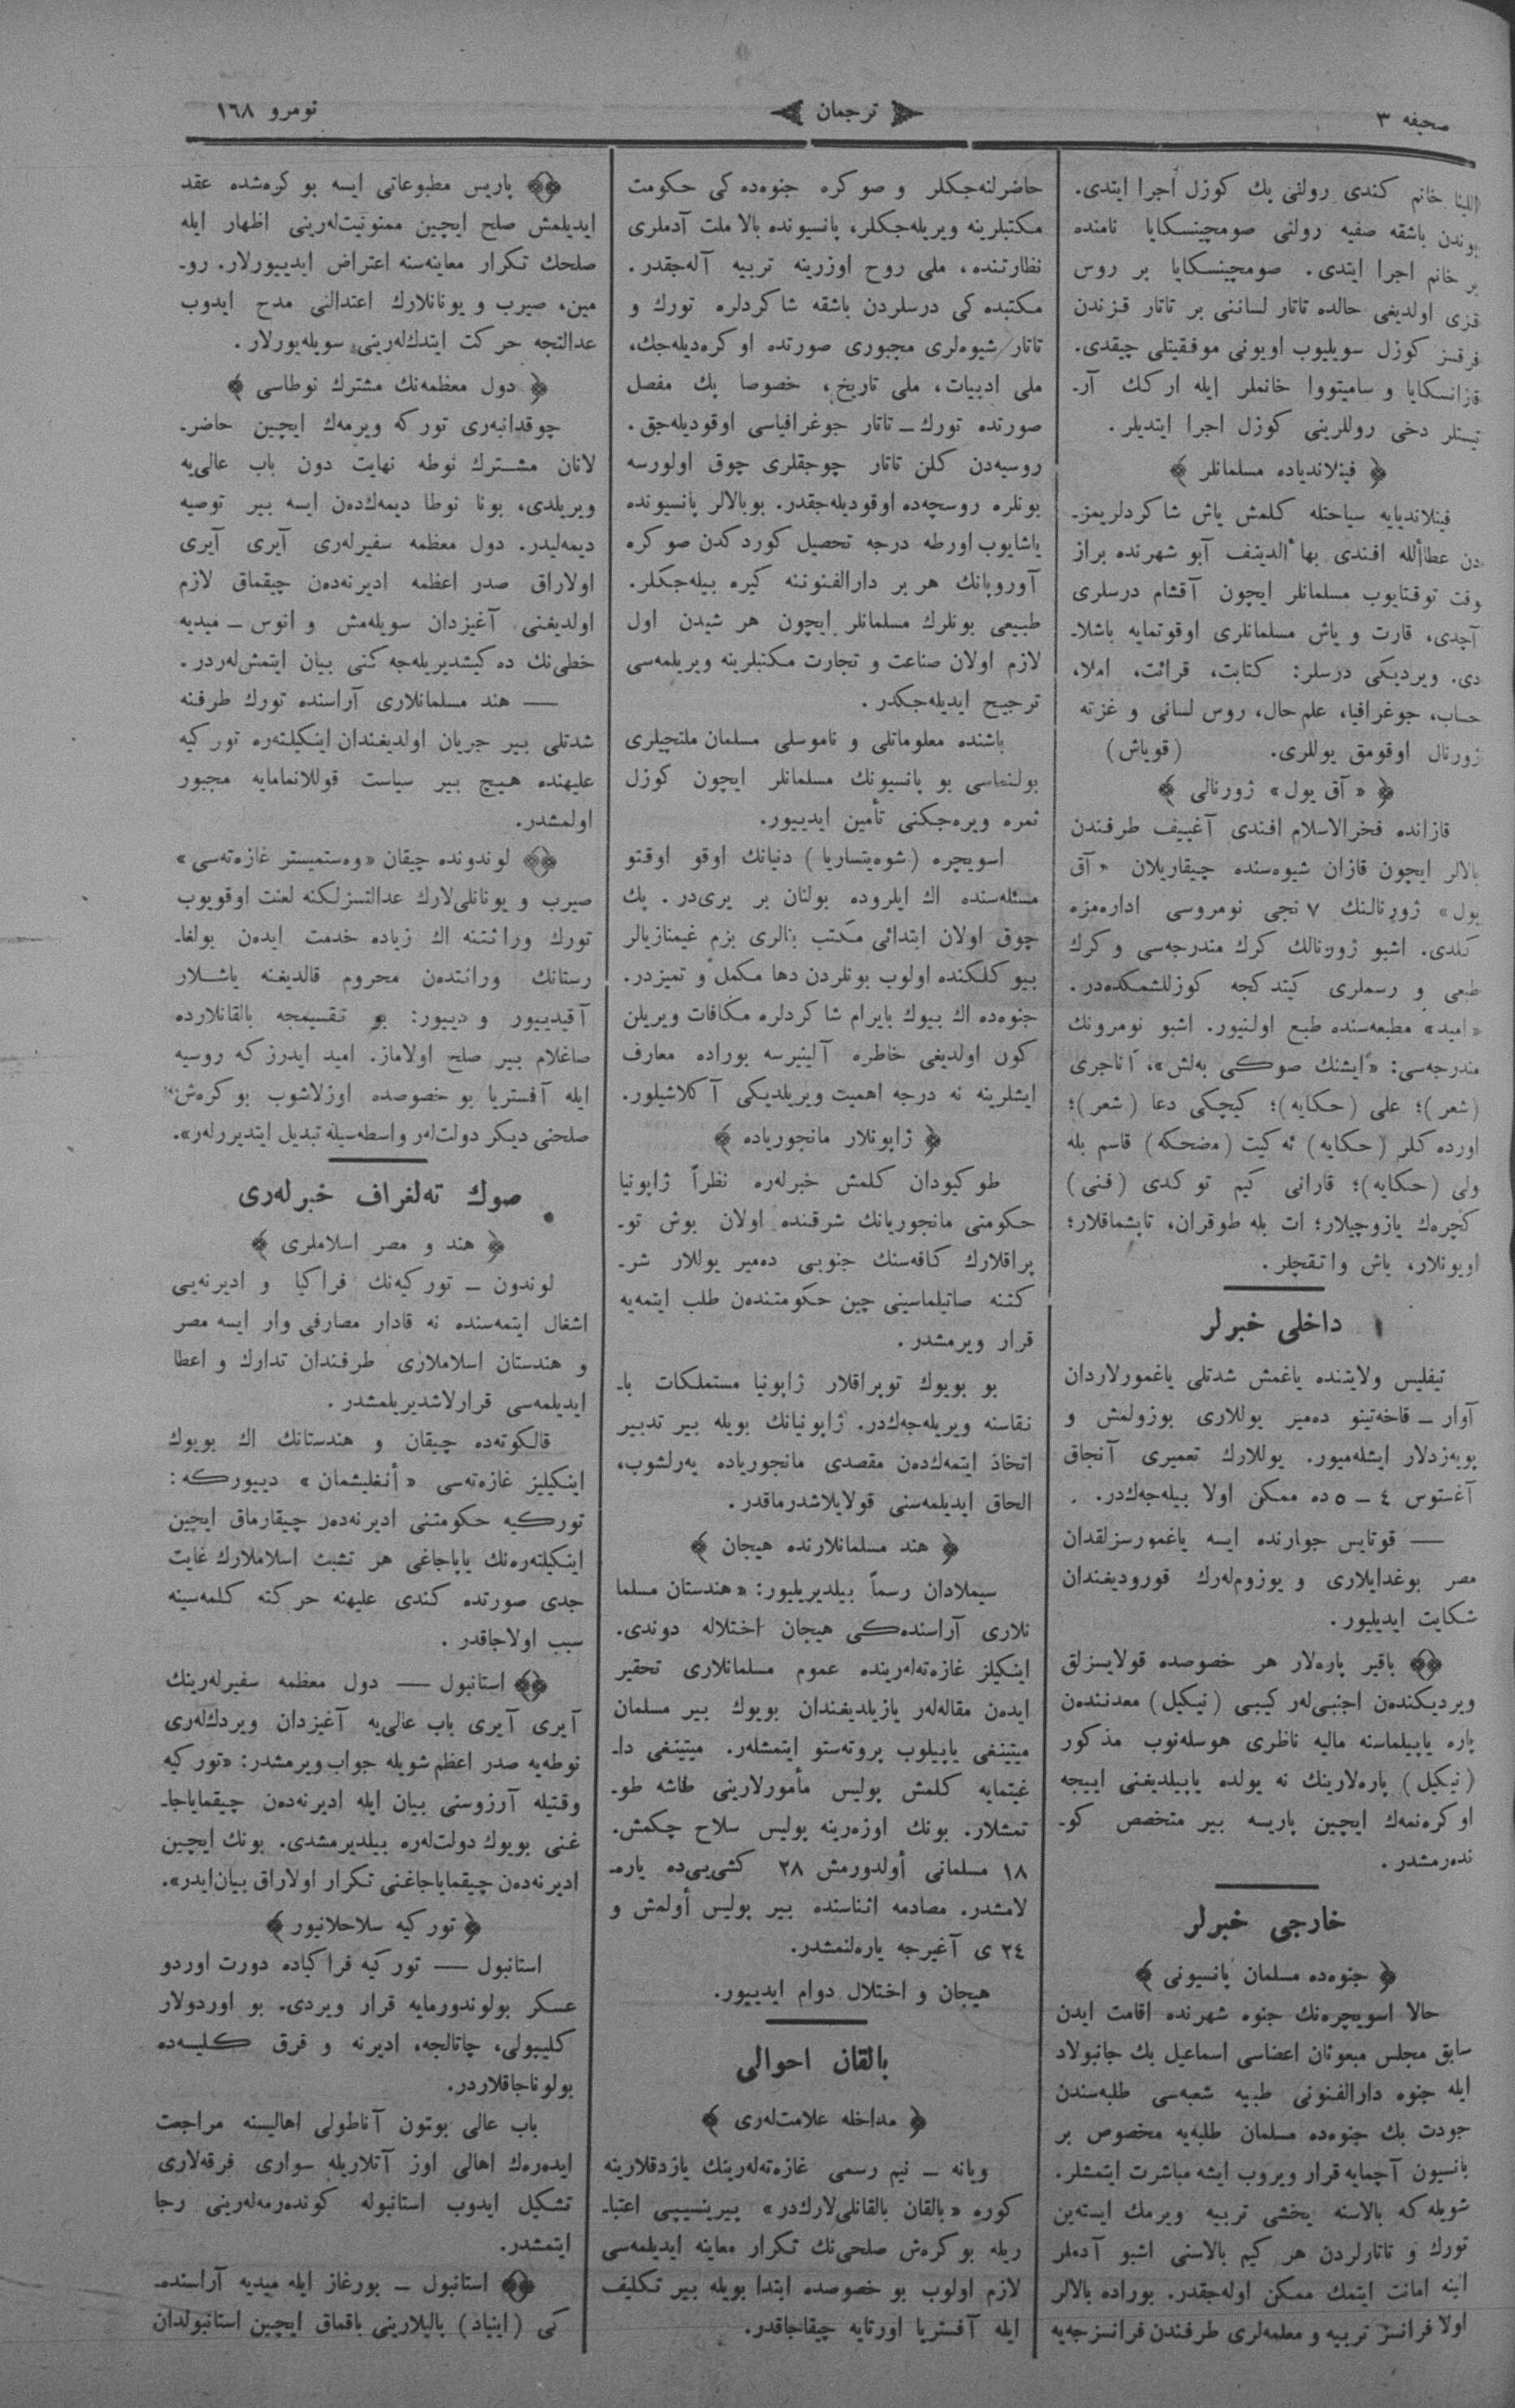 صحيفه ٣
ترجمان
نومرو ١٦٨
خانم كندى رولنى بك كوزل اجرا ايتدى.
بوندن باشقه صفيه رولنى صومچينسكايا نامنده
بر خانم اجرا ايتدى. صومچينسكايا بر روس
قزى اولديغى حالده تاتار لساننى بر تاتار قزندن
فرقسز كوزل سويليوب اويونى موفقيتلى چيقدى.
قزانسكايا و ساميتووا خانملر ايله اركك آر-
تيستلر دخى روللرينى كوزل اجرا ايتديلر.
﴿ فينلاندياده مسلمانلر ﴾
فينلانديايه سياحتله كلمش ياش شاكردلريمز-
دن عطاءالله افندى بهاءالدينف آبو شهرنده براز
وقت توقتايوب مسلمانلر ايچون آقشام درسلرى
آچدى، قارت و ياش مسلمانلرى اوقوتمايه باشلا-
دى. ويرديكى درسلر: كتابت، قرائت، املا،
حساب، جوغرافيا، علم حال، روس لسانى و غزته
ژورنال اوقومق يوللرى. (قوياش)
﴿ «آق يول» ژورنالى ﴾
قازانده فخرالاسلام افندى آغييف طرفندن
بالالر ايچون قازان شيوه‌سنده چيقاريلان «آق
يول» ژورنالنك ٧ نجى نومروسى اداره‌مزه
كلدى. اشبو ژورنالك كرك مندرجه‌سى و كرك
طبعى و رسملرى كيتدكجه كوزللشمكده‌در.
«اميد» مطبعه‌سنده طبع اولنيور. اشبو نومرونك
مندرجه‌سى: «ايشنك صوڭى به‌لش»، آناجرى
(شعر)؛ على (حكايه)؛ كيچكى دعا (شعر)؛
اورده كلر (حكايه) ئه كيت (مضحكه) قاسم بله
ولى (حكايه)؛ قارانى كيم توكدى (فنى)
كچره‌ك يازوچيلار؛ ات بله طوقران، تابشماقلار؛
اويونلار، ياش واتقچلر.
داخلى خبرلر
تيفليس ولايتنده ياغمش شدتلى ياغمورلاردان
آوار ـ قاخه‌تينو ده‌مير يوللارى بوزولمش و
پويه‌زدلار ايشله‌ميور. يوللارك تعميرى آنجاق
آغستوس ٤ ـ ٥ ده ممكن اولا بيله‌جه‌كدر.
— قوتايس جوارنده ايسه ياغمورسزلقدان
مصر بوغدايلارى و يوزوم‌له‌رك قوروديغندان
شكايت ايديليور.
باقير پاره‌لار هر خصوصده قولايسزلق
ويرديكنده‌ن اجنبى‌له‌ر كيبى (نيكيل) معدننده‌ن
پاره ياپيلماسنه ماليه ناظرى هوسله‌نوب مذكور
(نيكيل) پاره‌لارينك نه يولده ياپيلديغنى اييجه
اوكره‌نمه‌ك ايچين پاريسه بير متخصص كو-
نده‌رمشدر.
خارجى خبرلر
﴿ جنوه‌ده مسلمان پانسيونى ﴾
حالا اسويچره‌نك جنوه شهرنده اقامت ايدن
سابق مجلس مبعوثان اعضاسى اسماعيل بك جانبولاد
ايله جنوه دارالفنونى طبيه شعبه‌سى طلبه‌سندن
جودت بك جنوه‌ده مسلمان طلبه‌يه مخصوص بر
پانسيون آچمايه قرار ويروب ايشه مباشرت ايتمشلر.
شويله كه بالاسنه يخشى تربيه ويرمك ايسته‌ين
تورك و تاتارلردن هر كيم بالاسنى اشبو آدملر
امانت ايتمك ممكن اوله‌جقدر. بوراده بالالر
اولا فرانسز تربيه و معلمه‌لرى طرفندن فرانسزجه‌يه
حاضرلنه‌جكلر و صوكره جنوه‌ده كى حكومت
مكتبلرينه ويريله‌جكلر، پانسيونده بالا ملت آدملرى
نظارتنده، ملى روح اوزرينه تربيه آله‌جقدر.
مكتبده كى درسلردن باشقه شاكردلره تورك و
تاتار شيوه‌لرى مجبورى صورتده اوكره‌ديله‌جك،
ملى ادبيات، ملى تاريخ، خصوصا بك مفصل
صورتده تورك ـ تاتار جوغرافياسى اوقوديله‌جق.
روسيه‌دن كلن تاتار چوجقلرى چوق اولورسه
بونلره روسچه‌ده اوقوديله‌جقدر. بو بالالر پانسيونده
ياشايوب اورطه درجه تحصيل كوردكدن صوكره
آوروپانك هر بر دارالفنوننه كيره بيله‌جكلر.
طبيعى بونلرك مسلمانلر ايچون هر شيدن اول
لازم اولان صناعت و تجارت مكتبلرينه ويريلمه‌سى
ترجيح ايديله‌جكدر.
باشنده معلوماتلى و ناموسلى مسلمان ملتچيلرى
بولنماسى بو پانسيونك مسلمانلر ايچون كوزل
ثمره ويره‌جكنى تأمين ايدييور.
اسويچره (شوه‌يتساريا) دنيانك اوقو اوقتو
مسئله‌سنده اك ايلروده بولنان بر يرى‌در. بك
چوق اولان ابتدائى مكتب بنالرى بزم غيمنازيالر
بيوكلكنده اولوب بونلردن دها مكمل و تميزدر.
جنوه‌ده اك بيوك بايرام شاكردلره مكافات ويريلن
كون اولديغى خاطره آلينيرسه بوراده معارف
ايشلرينه نه درجه اهميت ويريلديكى آكلاشيلور.
﴿ ژاپونلار مانجورياده ﴾
طوكيودان كلمش خبرله‌ره نظراً ژاپونيا
حكومتى مانجوريانك شرقنده اولان بوش تو-
پراقلارك كافه‌سنك جنوبى ده‌مير يوللار شر-
كتنه صاتيلماسينى چين حكومتنده‌ن طلب ايتمه‌يه
قرار ويرمشدر.
بو بويوك توپراقلار ژاپونيا مستملكات با-
نقاسنه ويريله‌جه‌كدر. ژاپونيانك بويله بير تدبير
اتخاذ ايتمه‌كده‌ن مقصدى مانجورياده يه‌رلشوب،
الحاق ايديلمه‌سنى قولايلاشدرماقدر.
﴿ هند مسلمانلارنده هيجان ﴾
سيملادان رسماً بيلديريليور: «هندستان مسلما
نلارى آراسنده‌كى هيجان اختلاله دوندى.
اينكيلز غازه‌ته‌له‌رينده عموم مسلمانلارى تحقير
ايده‌ن مقاله‌له‌ر يازيلديغندان بويوك بير مسلمان
ميتينغى ياپيلوب پروته‌ستو ايتمشله‌ر. ميتينغى دا-
غيتمايه كلمش پوليس مأمورلارينى طاشه طو-
تمشلار. بونك اوزه‌رينه پوليس سلاح چكمش.
١٨ مسلمانى أولدورمش ٢٨ كشى‌يى‌ده ياره-
لامشدر. مصادمه اثناسنده بير پوليس أولمش و
٢٤ ى آغيرجه ياره‌لنمشدر.
هيجان و اختلال دوام ايدييور.
بالقان احوالى
﴿ مداخله علامت‌له‌رى ﴾
ويانه ـ نيم رسمى غازه‌ته‌له‌رينك يازدقلارينه
كوره «بالقان بالقانلى‌لارك‌در» پيرينسيپى اعتبا-
ريله بوكره‌ش صلحى‌نك تكرار معاينه ايديلمه‌سى
لازم اولوب بو خصوصده ابتدا بويله بير تكليف
ايله آفستريا اورتايه چيقاجاقدر.
پاريس مطبوعاتى ايسه بوكره‌شده عقد
ايديلمش صلح ايچين ممنونيت‌له‌رينى اظهار ايله
صلحك تكرار معاينه‌سنه اعتراض ايدييورلار. رو-
مين، صيرب و يونانلارك اعتدالنى مدح ايدوب
عدالتجه حركت ايتدكله‌رينى سويله‌يورلار.
﴿ دول معظمه‌نك مشترك نوطاسى ﴾
چوقدانبه‌رى توركه ويرمه‌ك ايچين حاضر-
لانان مشترك نوطه نهايت دون باب عالى‌يه
ويريلدى، بونا نوطا ديمه‌كده‌ن ايسه بير توصيه
ديمه‌ليدر. دول معظمه سفيرله‌رى آيرى آيرى
اولاراق صدر اعظمه اديرنه‌ده‌ن چيقماق لازم
اولديغنى آغيزدان سويله‌مش و انوس ـ ميديه
خطى‌نك ده كيشديريله‌جه كنى بيان ايتمش‌له‌ردر.
— هند مسلمانلارى آراسنده تورك طرفنه
شدتلى بير جريان اولديغندان اينكيلته‌ره توركيه
عليهنده هيچ بير سياست قوللانمامايه مجبور
اولمشدر.
لوندونده چيقان «وه‌ستميستر غازه‌ته‌سى»
صيرب و يونانلى‌لارك عدالتسزلكنه لعنت اوقويوب
تورك وراثتنه اك زياده خدمت ايده‌ن بولغا-
رستانك وراثتده‌ن محروم قالديغنه ياشلار
آقيدييور و دييور: بو تقسيمجه بالقانلارده
صاغلام بير صلح اولاماز. اميد ايدرز كه روسيه
ايله آفستريا بو خصوصده اوزلاشوب بوكره‌ش
صلحنى ديكر دولت‌لەر واسطه‌سيله تبديل ايتديررله‌ر».
صوك ته‌لغراف خبرله‌رى
﴿ هند و مصر اسلاملرى ﴾
لوندون ـ توركيه‌نك فراكيا و اديرنه‌يى
اشغال ايتمه‌سنده نه قادار مصارفى وار ايسه مصر
و هندستان اسلاملارى طرفندان تدارك و اعطا
ايديلمه‌سى قرارلاشديريلمشدر.
قالكوته‌ده چيقان و هندستانك اك بويوك
اينكيليز غازه‌ته‌سى «أنغليشمان» دييوركه:
توركيه حكومتنى اديرنه‌ده‌ن چيقارماق ايچين
اينكيلته‌ره‌نك ياپاجاغى هر تشبث اسلاملارك غايت
جدى صورتده كندى عليهنه حركته كلمه‌سينه
سبب اولاجاقدر.
استانبول — دول معظمه سفيرله‌رينك
آيرى آيرى باب عالى‌يه آغيزدان ويردكله‌رى
نوطه‌يه صدر اعظم شويله جواب ويرمشدر: «توركيه
وقتيله آرزوسنى بيان ايله اديرنه‌ده‌ن چيقماياجا-
غنى بويوك دولت‌له‌ره بيلديرمشدى. بونك ايچين
اديرنه‌ده‌ن چيقماياجاغنى تكرار اولاراق بيان‌ايدر».
﴿ توركيه سلاحلانيور ﴾
استانبول — توركيه فراكياده دورت اوردو
عسكر بولوندورمايه قرار ويردى. بو اوردولار
كليبولى، چاتالجه، اديرنه و قرق كليسه‌ده
بولوناجاقلاردر.
باب عالى بوتون آناطولى اهاليسنه مراجعت
ايده‌رك اهالى اوز آتلاريله سوارى فرقه‌لارى
تشكيل ايدوب استانبوله كونده‌رمه‌له‌رينى رجا
ايتمشدر.
استانبول ـ بورغاز ايله ميديه آراسنده-
كى (اينياد) ياليلارينى باقماق ايچين استانبولدان